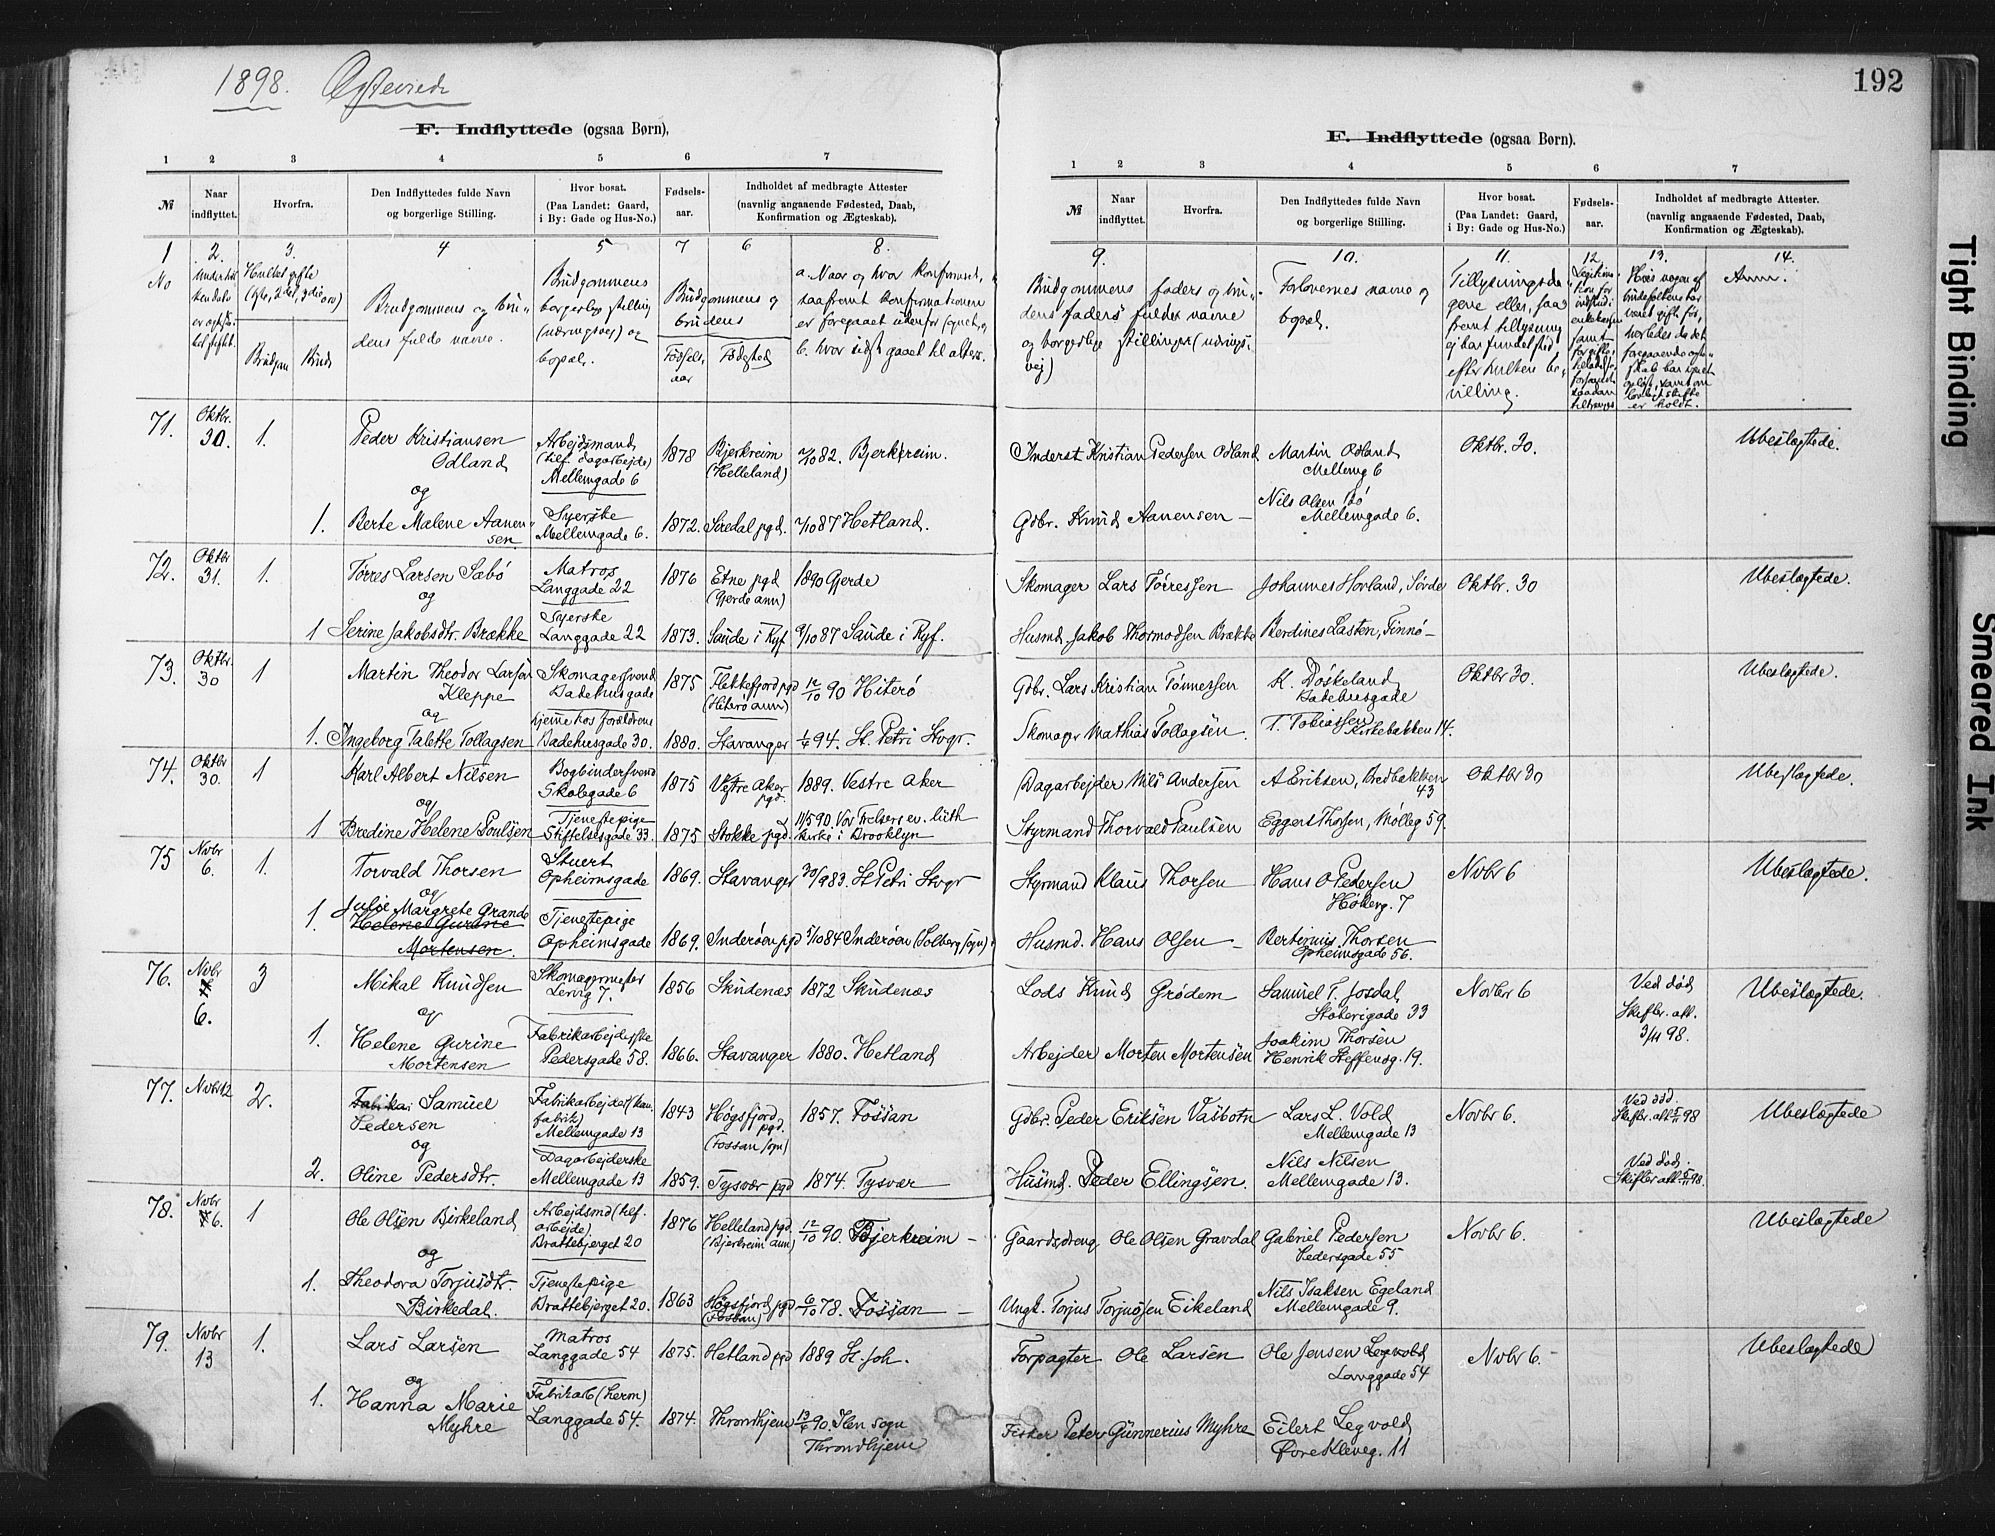 1898. Ægteviede
192
F. Indflyttede (ogsaa Børn),
1 2 3 4 5 6 7
№
Naar indflyttet.
Hvorfra.
Den Indflyttedes fulde Navn og borgerlige Stilling.
Hvor bosat. (Paa Landet: Gaard, i By: Gade og Hus-No.)
Fødsels-aar.
Indholdet af medbragte Attester (navnlig angaaende Fødested, Daab, Konfirmation og Ægteskab).
1 2. 3. 4 5 7 6 8.
No
Brudgom Brud
Brudgommens og bru-
dens fulde navne.
Brudgommens
borgerlig stilling
(næringsvej) og
bopæl.
Brudgommens og
brudens
Fødsels-
aar
Fødested
a. Naar og hvor konfirmeret,
saafremt konfirmationen
er foregaaet udenfor sognet, og
b. hvor sidst gaaet til alters.
71. Oktbr. 30. 1. Peder Kristiansen
Odland
Arbejdsmand
(löf. dagarbejde)
Mellemgade 6
1878 Bjerkreim
(Helleland)
82. Bjerkreim.
og
1. Berte Malene Aanen-
sen.
Syerske
Mellemgade 6.
1872. Siredal pgd. 87 Hetland.
72. Oktbr 31. 1. Tørres Larsen Sæbö
Matros
Langgade 22
1876 Etne pgd
(Gjerde ann)
1890 Gjerde
og
1 Serine Jakobsdtr. Brække
Syerske
Langgade 22
1873. Saude i Ryf. 9/10 87 Saude i Ryf.
73. Oktbr. 30 1 Martin Theodor Larsen
Kleppe
Skomagersvend
Badehusgade
1875 Flekkefjord pgd
(Hiterö ann)
12/10 90 Hiterø
og
1. Ingeborg Talette Tollagsen
hjemme hos forældrene
Badehusgade 30.
1880. Stavanger 94. St. Petri Stvgr.
74. Oktbr 30. 1 Karl Albert Nilsen
Bogbindersvend
Skolegade 6
1875 Vestre Aker
pgd.
1889. Vestre Aker
og
1 Bredine Helene Poulsen
Tjenestepige
Stiftelsesgade 33.
1875 Stokke pgd. 11/5 90 Vor Frelsers ev. luth
kirke i Brooklyn
75 Nvbr 6. 1. Torvald Thorsen
Stuert
Opheimsgade
1869. Stavanger 30/9 83. St. Petri Stvgr
og
1. Julie Margrete Grande
Helene Gurine
Mortensen.
Tjenestepige
Opheimsgade
1869. Inderøen pgd 5/10 84 Inderøen (Solberg sogn)
76. Nvbr 6. 3 Mikal Knudsen
Skomagermester
Lervig 7.
1856 Skudenæs 1872 Skudenæs
og
1. Helene Gurine
Mortensen
Fabrikarbejderske
Pedersgade 58.
1866. Stavanger 1880. Hetland
77. Nvbr 12 2. Samuel
Pedersen
Mellemgade 13
1843 Høgsfjord
pgd.
(Fossan sogn)
1857. Fossan
og
2. Oline Pedersdtr.
Dagarbejderske
Mellemgade 13
1859. Tysvær pgd 1874. Tysvær
78. Nvbr 6. 1 Ole Olsen Birkeland
Arbejdsmd (löf.
arbejde)
Brattebjerget 20
1876 Helleland pgd.
(Bjerkreim ann)
12/10 90. Bjerkreim
og
1. Theodora Torjusdtr.
Birkedal.
Tjenestepige
Brattebjerget 20.
1863 Høgsfjord pgd
(Fossan)
6/10 78. Fossan
79. Nvbr 13 1. Lars Larsen
Matros
Langgade 54
1875. Hetland pgd 1889 St. Joh.
og
1. Hanna Marie
Myhre
Fabrikarb (herm)
Langgade 54.
1874. Throndhjem 90. Ilen sogn
Throndhjem
F. Indflyttede (ogsaa Børn).
1 2 3 4 5 6 7
№
Naar indflyttet.
Hvorfra.
Den Indflyttedes fulde Navn og borgerlige Stilling.
Hvor bosat. (Paa Landet: Gaard, i By: Gade og Hus-No.)
Fødsels-aar.
Indholdet af medbragte Attester. (navnlig angaaende Fødested, Daab, Konfirmation og Ægteskab).
9. 10. 11. 12. 13. 14.
Brudgommens faders og bru-
dens faders fulde navne
og borgerlige stillinger (nærings-
vej)
Forlovernes navne og
bopæl.
Anm.
Inderst Kristian Pedersen Odland Martin Odland
Mellemg 6
Oktbr. 30. Ubeslægtede.
Gdbr. Knud Aanensen Nils Olsen
Mellemgade 6.
Skomager Lars Tørressen Johannes Hovland, Sørde Oktbr. 30 Ubeslægtede.
Husmd. Jakob Thormodsen Brække Berdines Lasten, Finnö
Gdbr. Lars Kristian Tönnessen K. Döskeland
Badehusgade
Oktbr 30. Ubeslægtede.
Skomagr Mathias Tollagsen T. Tobiassen
Kirkebakken 14.
Dagarbejder Nils Andersen A Eriksen, Bredbakken
43
Oktbr 30 Ubeslægtede.
Styrmand Thorvald Paulsen Eggert Thorsen, Mølleg 59.
Styrmand Klaus Thorsen Hans O Pedersen
Høkerg. 7
Nvbr 6 Ubeslægtede.
Husmd. Hans Olsen Bertinius Thorsen
Opheimsgade 56.
Lods Knud Grødem Samuel T. Josdal
Stokerigade 33
Novbr 6 Ved död
Skifter. att.
3/11 98.
Ubeslægtede.
Arbejder Morten Mortensen Joakim Thorsen
Henrik Steffensg. 19.
Gdbr. Peder Eriksen Vasbotn Lars L. Vold
Mellemgade 13
Novbr 6. Ved död.
Skifter. att 98
Ubeslægtede
Husmd. Peder Ellingsen. Nils Nilsen
Mellemgade 13.
Ved död.
Skifter att 98.
Gaardsdreng Ole Olsen Gravdal Gabriel Pedersen
Pedersgade 55
Novbr 6. Ubeslægtede
Ungk. Torjus Torjusen Eikeland Nils Isaksen Egeland
Mellemgade 9.
Forpagter Ole Larsen Ole Jensen Legvold
Langgade 54
Nvbr 6. Ubeslægtede
Fisker Peter Gunnerius Myhre Eilert Legvold
Øvre Kleveg. 11
Tight Binding
Smeared Ink